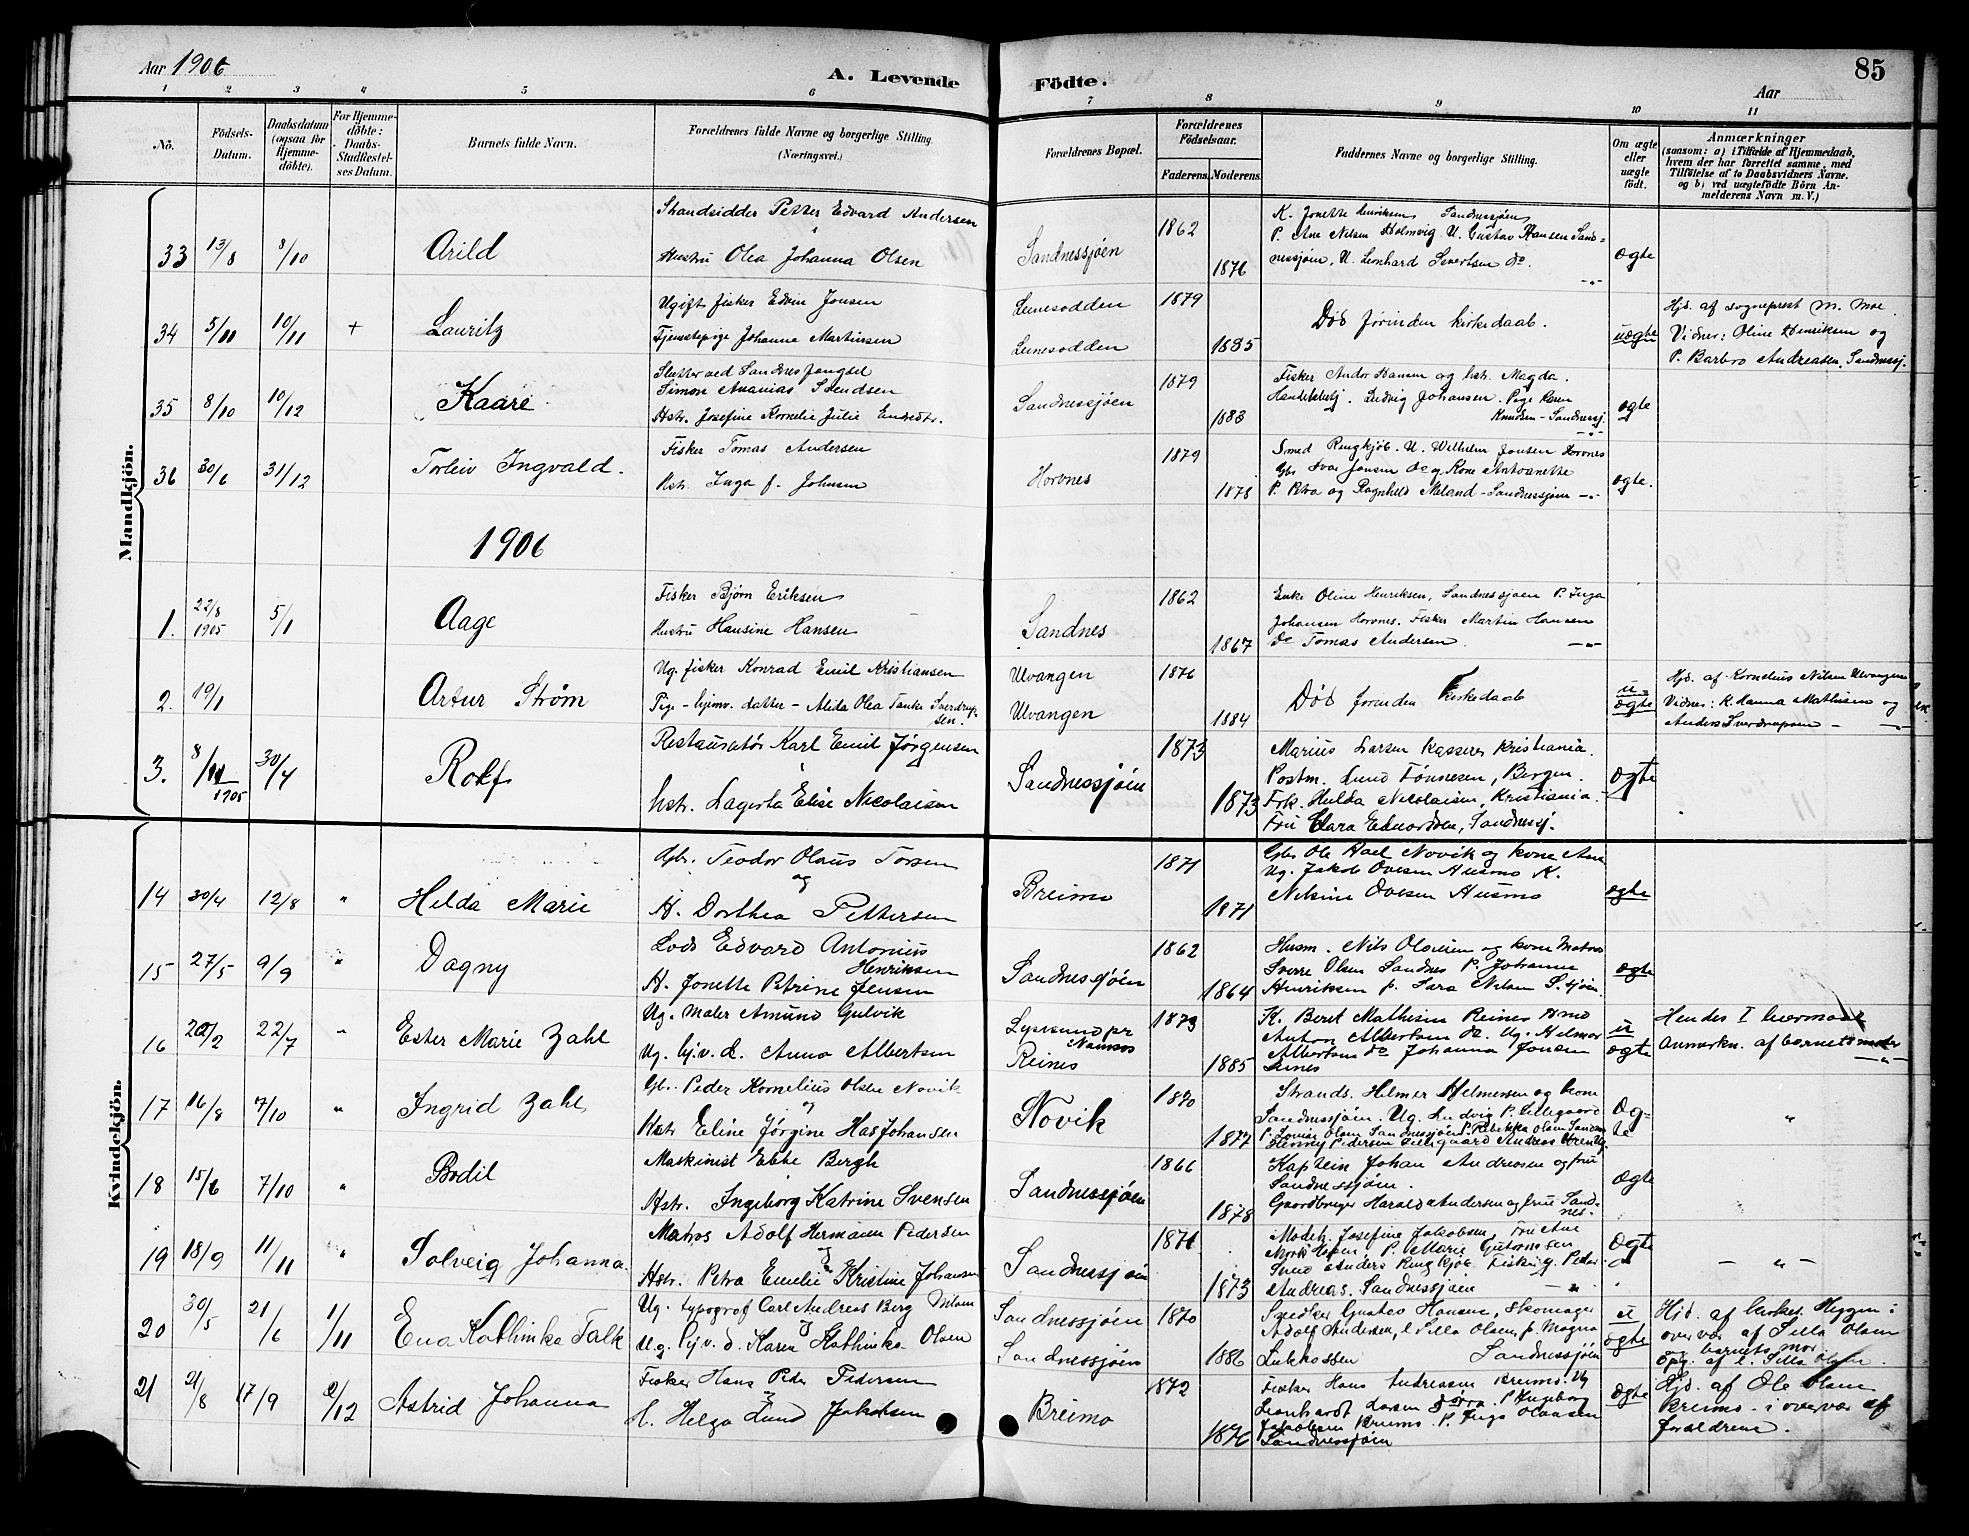 Aar 1906
A. Levende Födte.
Aar
85
1 2 3 4 5 6 7 8 9 10 11
Nö.
Födsels-Datum.
Daabsdatum (ogsaa for Hjemmedöbte).
For Hjemmedöbte: Daabs-Stadfæstelses Datum.
Barnets fulde Navn.
Forældrenes fulde Navne og borgerlige Stilling. (Næringsvei.)
Forældrenes Bopæl.
Forældrenes Födselsaar.
Faderens. Moderens.
Faddernes Navne og borgerlige Stilling.
Om ægte eller uægte födt.
Anmærkninger
(saasom: a) i Tilfælde af Hjemmedaab,
hvem der har forrettet samme, med
Tilföielse af to Daabsvidners Navne.
og b) ved uægtefödte Börn An-
melderens Navn m. V.)
Mandkjön.
33 13/8 8/10 Arild
Strandsidder Petter Edvard Andersen
Hustru Olea Johanna Olsen
Sandnessjöen 1862 1876
K. Jonette Henriksen Sandnessjöen
P. Ane Nilsen Holmvig U. Gustav Hansen Sand-
nessjöen, U. Leonhard Sivertsen do
ægte
34 5/11 10/11 + Lauritz
Ugift fisker Edvin Jonsen
Tjenestepige Johanne Martinsen
Leinesodden 1879
Leinesodden 1885
Död forinden kirkedaab.
uægte
Hjd. af sogneprest M. Moe.
Vidner: Oline Henriksen og
P. Barbro Andreasen, Sandnessj.
35 8/10 10/12 Kaare
Simon Ananias Svendsen
Hstr. Josefine Kornelie Julie
Sandnessjöen 1879 1883
Fisker Andor Hansen og hstr. Magda.
Ludvig Johansen. Pige Karen
Knudsen - Sandnessj.
ægte
36 30/6 31/12 Torleiv Ingvald.
Fisker Tomas Andersen
Hstr. Inga f. Johnsen
Horvnes 1879 1878
Smed Ringkjöb. U. Wilhelm Jonsen Horvnes
Gbr. Ivar Jonsen do og Kone Antoanette
P. Petra og Ragnhild Meland - Sandnessjöen
ægte.
1906
1. 22/8 1905 5/1 Aage
Fisker Björn Eriksen
Hustru Hansine Hansen
Sandnes 1862 1867
Enke Oline Henriksen, Sandnessjöen P. Inga
Johansen Horvnes. Fisker Martin Hansen
do Tomas Andersen
2. 19/1 Artur Ström
Ug. fisker Konrad Emil Kristiansen
Pige - hjemv. datter - Alida Olea Tanke Sverdrup-
sen.
Ulvangen 1876
Ulvangen 1884
Död forinden Kirkedaab
u-ægte
Hjd. af Kornelius Nilsen Ulvangen
Vidner: K. Hanna Mathisen og
Anders Sverdrupsen
3. 8/11 1905 30/4 Rolf
Restauratör Karl Emil Jörgensen
hstr. Lagerta Elise Nicolaisen
Sandnessjöen 1873 1873
Marius Larsen Kasserer Kristiania.
Postm. Lund Tönnesen, Bergen.
Frk. Hulda Nicolaisen, Kristiania.
Fru Clara Edvardsen, Sandnessj.
ægte
Kvindekjön.
14 30/4 12/8 " Helda Marie
Gbr. Teodor Olaus Torsen
og
H. Dorthea Pettersen
Breimo 1871 1871
Gbr Ole Hael Novik og kone Ane
Ug. Jakob Ovesen Husmo K.
Nilsine Ovesen Husmo
ægte
15 27/5 9/9 " Dagny
Lods Edvard Antonius
Henriksen
H. Jonette Petrine Jensen
Sandnessjöen 1862 1864
Husm. Nils Olausen og kone Matros
Sverre Olsen Sandnes P. Johanne
Henriksen p. Sara Nilsen S.sjöen.
ægte
16 20/2 22/7 " Ester Marie Zahl
Ug. Maler Amund Gulvik
Ug. hj.v. d. Anna Albertsen
Lysesund pr Namsos 1879
Reines 1885
K. Berit Mathisen Reines Hmd
Anton Albertsen do. Ug. Hilmar
Albertsen do Johanna Jonsen
Reines
u ægte
Hendes I nærmaal
Anmerkn. af barnets moder
17 16/8 7/10 " Ingrid Zahl
Gbr. Peder Kornelius Olsen Novik
og
Hstr Eline Jörgine Has Johansen
Novik 1870 1877
Strands. Helmer Hjelmersen og kone
Sandnessjöen. Ug. Ludvig P. Sellegaard
P. Lovise Olsen Sandnessjöen P. Rebekka Olsen Sandnes
Henny Pedersen Sellegaard Andreas
Æg-te "
18 15/6 7/10 " Bodil
Maskinist Ebbe Bergh
Hstr. Ingeborg Katrine Svensen
Sandnessjöen 1866 1878
Kaptein Johan Andreasen og frue
Sandnessjöen.
Gaardbruger Harald Andersen og frue Sand-
nes.
ægte
19 18/9 11/11 " Solveig Johanna.
Matros Adolf Hermann Pedersen
og
Hstr. Petra Emelie Kristine Johansen
Sandnessjöen 1871 1873
Modeh. Josefine Jakobsen, Frue Ane
P. Marie Gutormsen
Smed Anders Ringkjöb Fisker g. Peter
Andreas. Sandnessjöen "
Ægte
- " -
20 30/5 21/6 1/11 Ena Kathinka Falk
Ug. typograf Carl Andreas Berg Nilsen
og
Ug. hj.v. d. Karen Kathinka Olsen
Sandnessjöen 1870
Sandnessjöen 1886
Snedker Gustav Hansen, skomager
Adolf Andersen, e. Silla Olsen, p. Magna
Lukkassen Sandnessjöen
u ægte
Hjd. af kirkes. Heggen i
overvær af Silla Olsen
og barnets mor
Opg. af e. Silla Olsen.
21 21/8 17/9 2/12 Astrid Johanna
Fisker Hans Peder Pedersen
og
H. Helga Lund Jakobsen
Breimo 1872 1876
Fisker Hans Andreassen Breimo. Ug
Leonhardt Larsen P. Ingeborg
Jakobsen Breimo. P. Inga Olausen
Sandnessjöen
ægte
Hjd. af Ole Olsen
Breimo - i overvær af
forældrene.